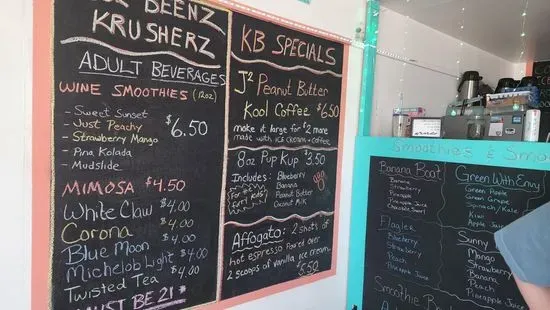 BEENZ
KRUSHERZ
ADULT BEVERAGES
WINE SMOOTHIES (12oz)
- Sweet Sunset
- Just Peachy
- Strawberry Mango
- Pina Kolada
- Mudslide
$6.50
MIMOSA $4.50
White Claw $4.00
Corona $4.00
Blue Moon $4.00
Michelob Light $4.00
Twisted Tea $4.00
MUST BE 21
KB SPECIALS
J² Peanut Butter
Kool Coffee $6.50
make it large for $2 more
made with ICE CREAM + COFFEE
8oz Pup Kup $3.50
Includes: Blueberry
Banana
Peanut Butter
Coconut Milk
Affogato: 2 shots of
hot espresso poured over
2 scoops of vanilla ice cream
5.50
Smoothies &
Banana Boat
Banana
Strawberry
Peach
Pineapple Juice
Flagler
Blueberry
Strawberry
Peach
Pineapple Juice
Smoothie
Green With Envy
Green Apple
Green Grape
Spinach/Kale
Kiwi
Apple Juice
Sunny
Mango
Strawberry
Banana
Peach
Pineapple